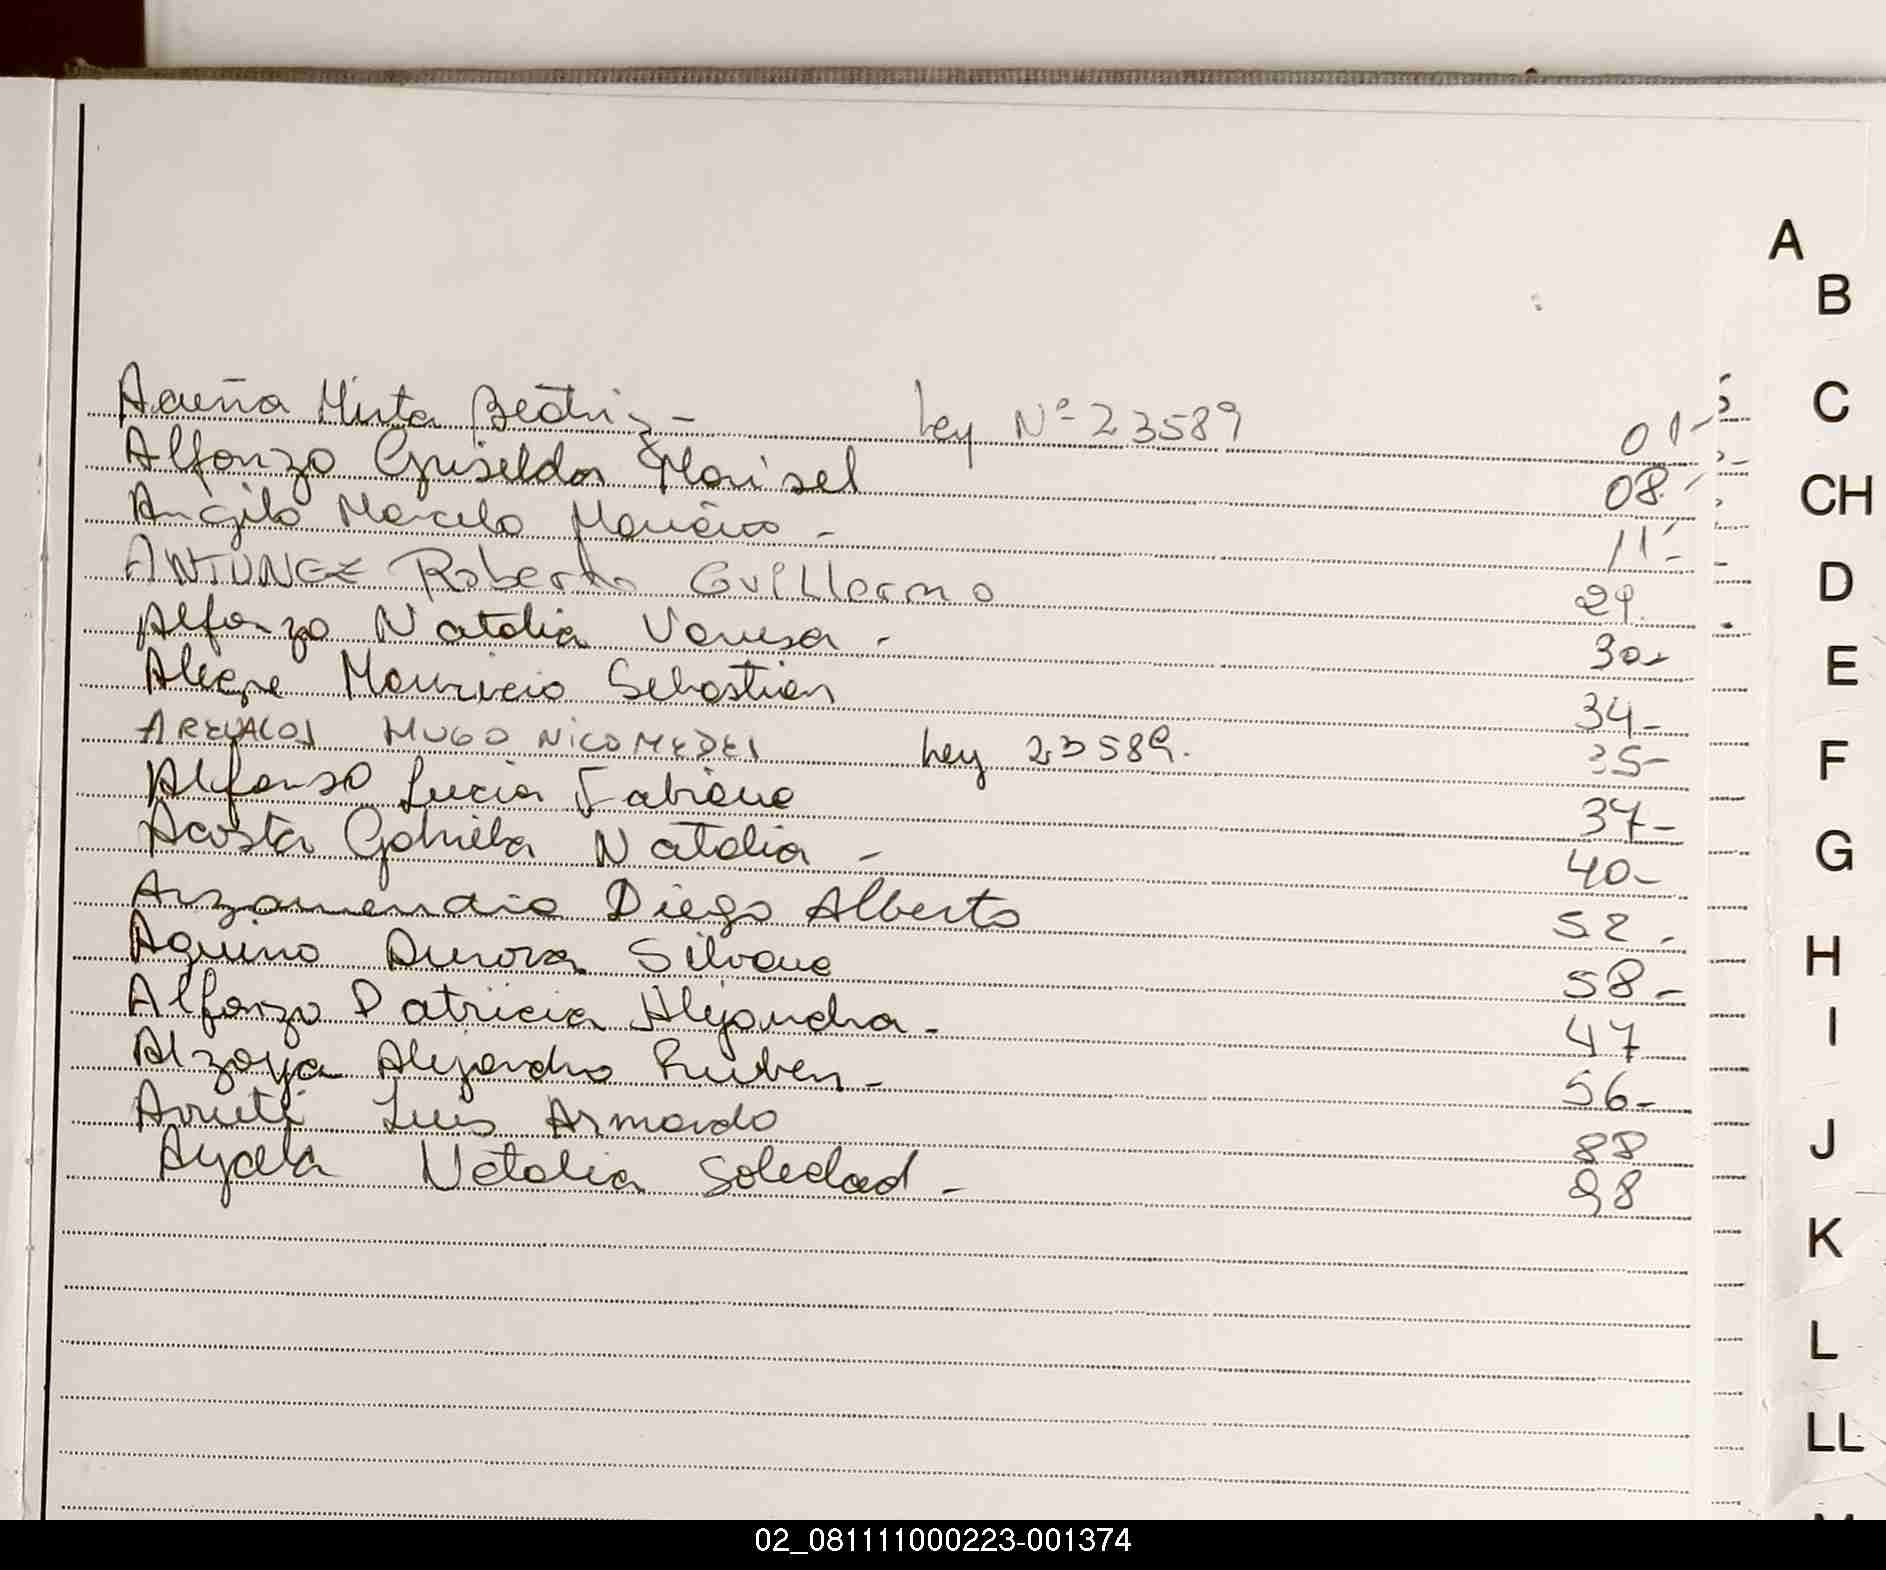 Acuña Mirta Beatriz - Ley Nº 23589 01-
Alfonzo Griselda Marisel 08-
Angilo Marcelo - 11-
ANTUNEZ Roberto GuiLLermo 29.
Alfonzo Natalia Vanesa - 30-
Alegre Mauricio Sebastian 34-
AREVALOS HUGO NICOMEDES Ley 23589. 35-
Alfonso Lucia Fabiana 37-
Acosta Gabriela Natalia - 40-
Arzamendia Diego Alberto 52-
Aquino Aurora Silvana 58-
Alfonzo Patricia Alejandra - 47
Alzoya Alejandro Ruben - 56-
Luis Armando 88
Ayala Natalia Soledad - 98
A
B
C
CH
D
E
F
G
H
I
J
K
L
LL
02_081111000223-001374